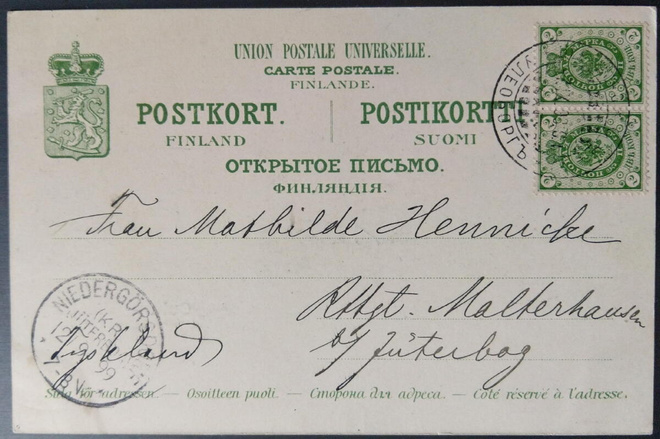 UNION POSTALE UNIVERSELLE.
CARTE POSTALE.
FINLANDE.
POSTKORT. POSTIKORTTI
FINLAND SUOMI
ОТКРЫТОЕ ПИСЬМО.
ФИНЛЯНДІЯ.
2 2
2 2
Frau Mathilde Hennicke
Rttgt. Malterhausen
b/ Jüterbog
Tyskland
NIEDERGÖRSDORF
12 9 99
Sida för adressen. — Osoitteen puoli. — Сторона для адреса. — Coté réservé à l'adresse.